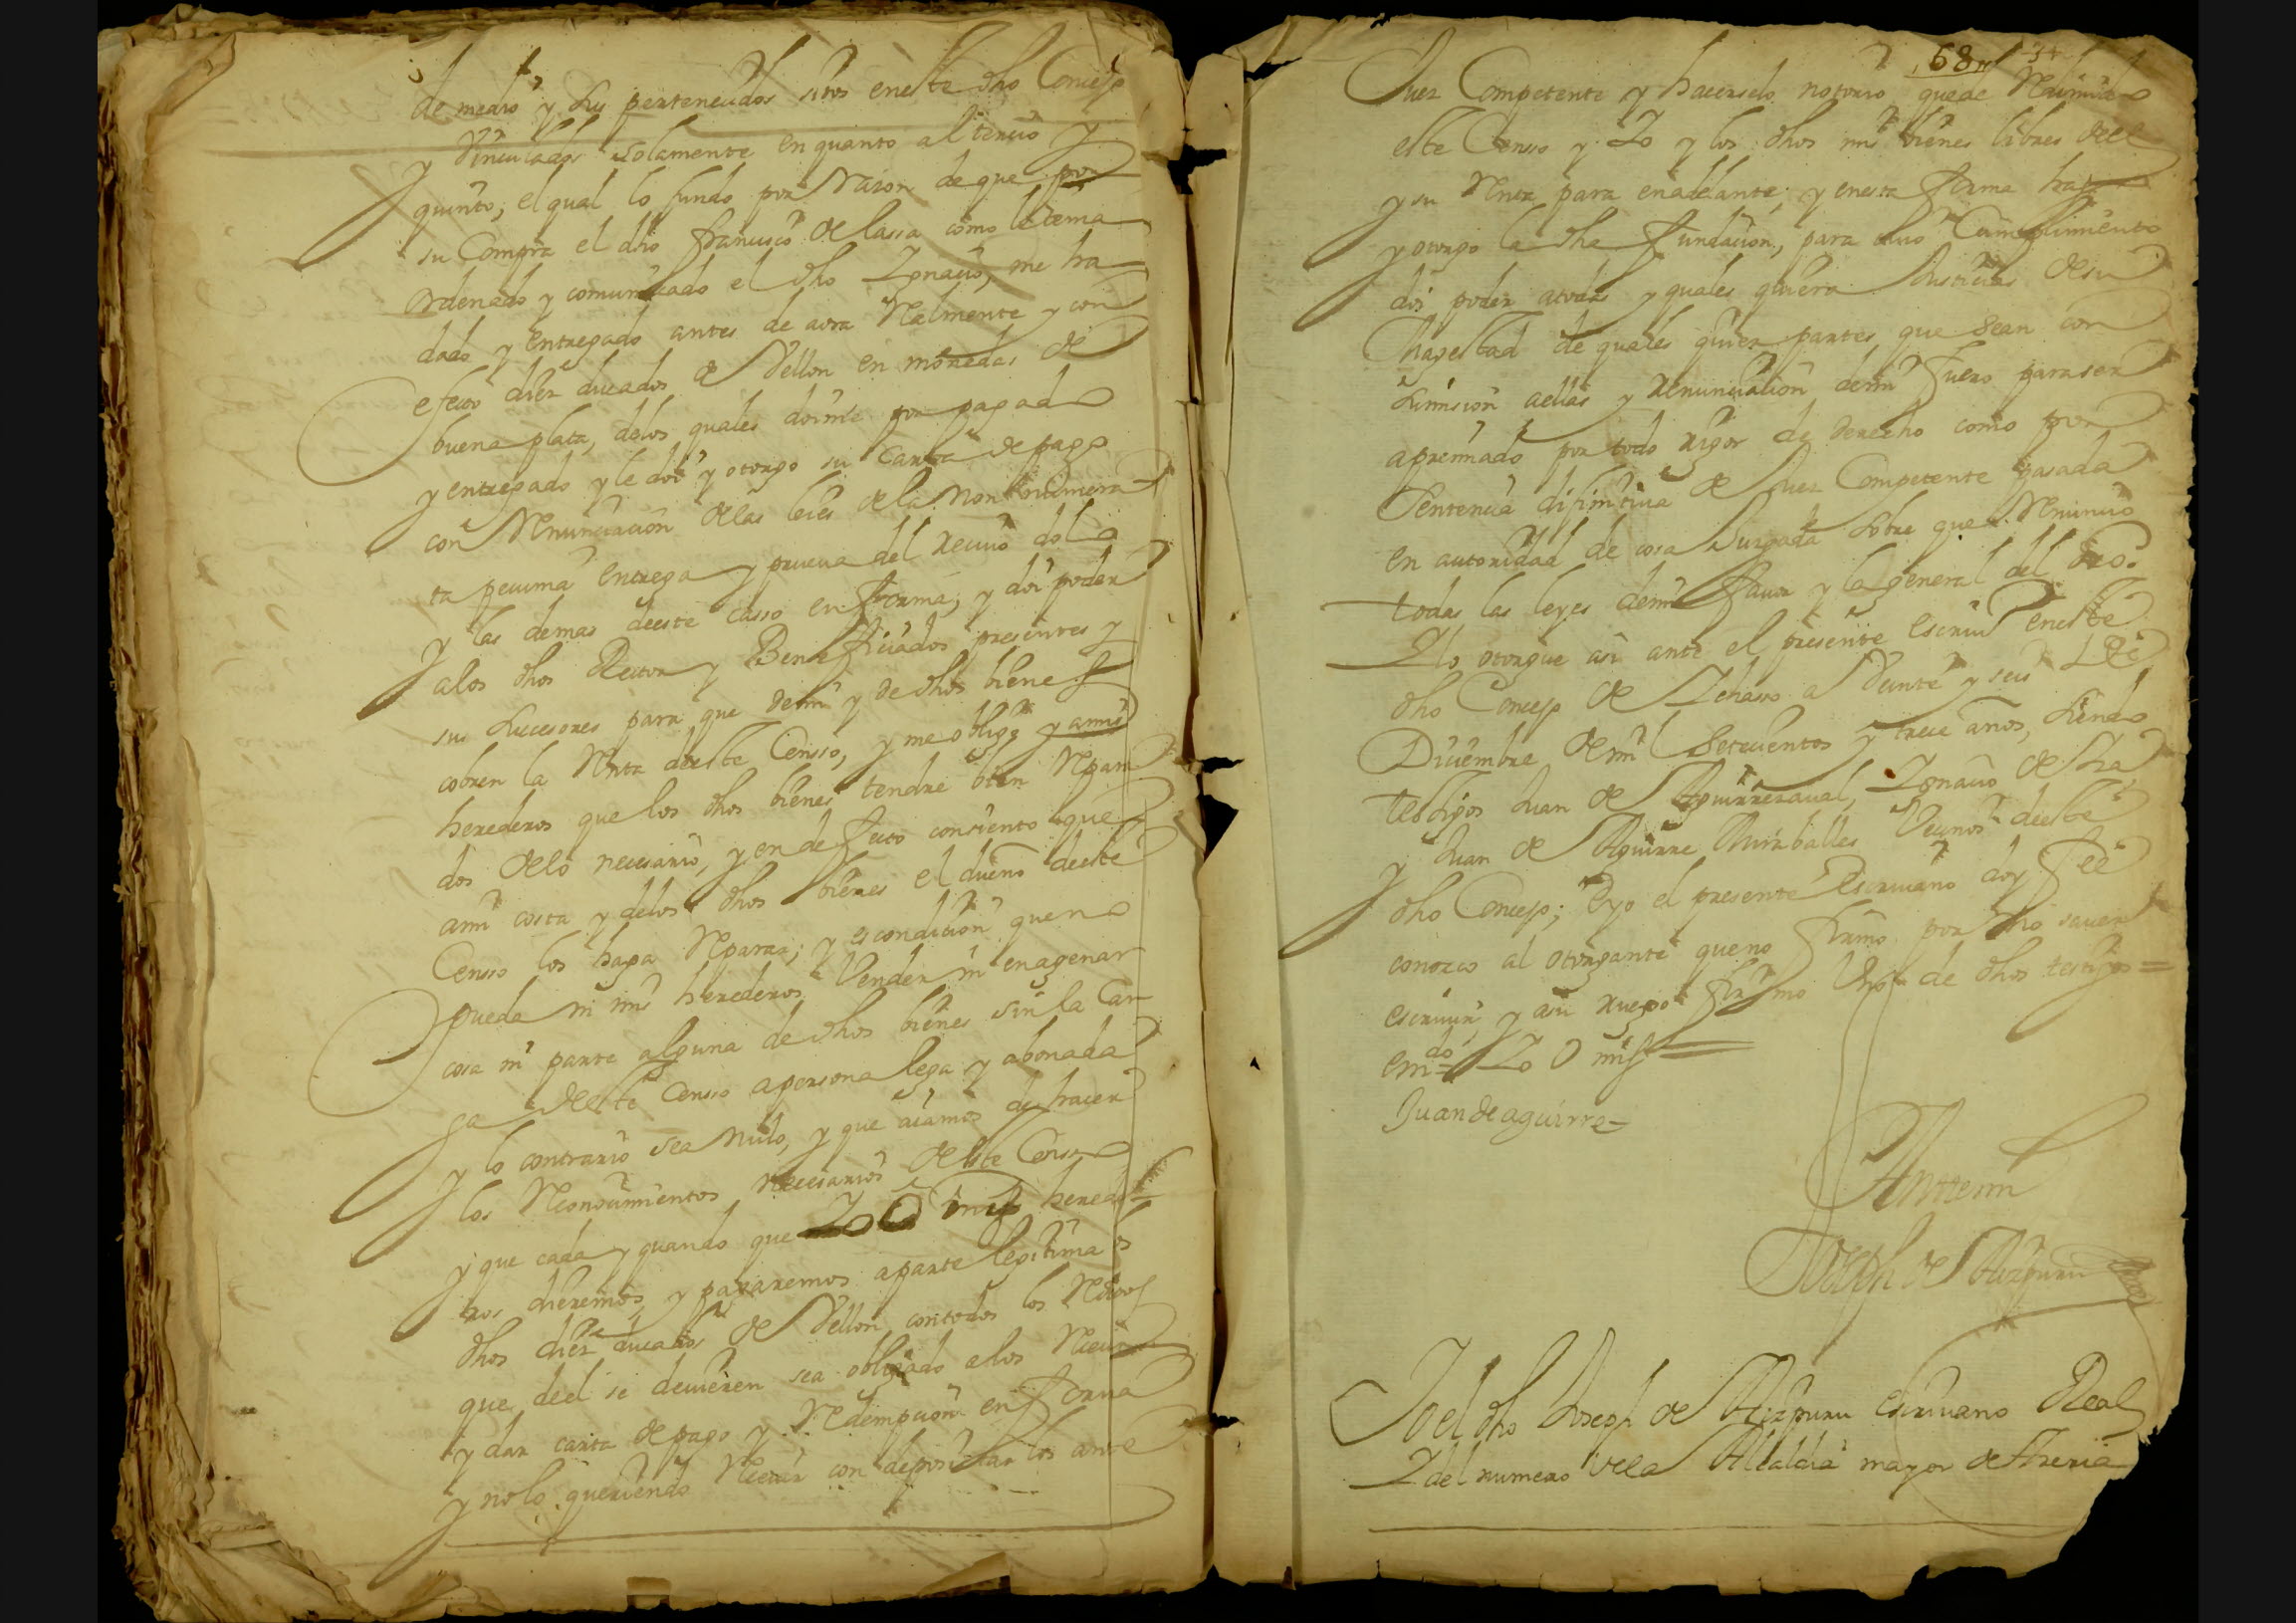 de medio y sus pertenecidos sitos eneste dho Concejo
y Vinculados solamente en quanto al tercio y
quinto, el qual lo fundo por Razon de que por
su Compra el dho francisco de lassa como le tenia
ordenado y comunicado el dho Ygnacio, me ha
dado y entregado antes de aora Realmente y con
efecto diez ducados de Vellon en monedas de
buena plata, delos quales doime por pagado
y entregado y le doi y otorgo su carta de pago
con Renunciacion delas leies dela Non Numera
ta pecunia entrega y prueva del recivo dolo
y las demas deeste casso en forma, y doi poder
alos dhos Rector y Beneficiados presentes y
sus sucesores para que demi y de dhos bienes
cobren la Renta deeste Censso, y me obligo y amis
herederos que los dhos bienes tendre bien Repara
dos delo necesario, y en defecto consiento que
ami costa y delos dhos bienes el dueño deeste
Censso los haga Reparar; y es condicion que no
pueda ni mis herederos Vender ni enagenar
cosa ni parte alguna de dhos bienes sin la Car
ga deeste Censso apersona lega y abonada
y lo contrario sea Nulo, y que aiamos de hacer
los Reconocimientos necesarios deeste Censso
y que cada y quando que Yo O mis herede
ros dieremos y pagaremos aparte legitima os
dhos diez ducados de Vellon contodos los Reditos
que deel se devieren sea obligado alos Recivir
y dar carta de pago y Redempcion en forma
y nolo queriendo Recivir con depositarlos ante
68 34
Juez Competente y hacerselo notorio quede Redimido
este Censso y Yo y los dhos mis bienes libres deel
y su Renta para enadelante; y enesta forma hago
y otorgo la dha fundacion, para cuio Cumplimiento
doi poder atodas y quales quiera Justicias desu
Magestad de quales quier partes que sean con
sumision aellas y Renunciacion demi fuero para ser
apremiado por todo rigor de derecho como por
Sentencia difinitiva de Juez Competente pasada
en autoridad de cosa Juzgada sobre que Renuncio
todas las leyes demi favor y la general del dro.
Y lo otorgue asi ante el presente escrivo eneste
dho Concejo de Ychasso a Veinte y seis de
Diciembre de mil Setecientos y trece años, siendo
testigos Juan de Aguirrezaval, Ygnacio de
y Juan de Aguirre Miraballes Vecinos deeste
dho Concejo; E yo el presente Escrivano doy fee
conozco al otorgante que no firmo por no saver
escrivir, y asu ruego firmo Uno de dhos testigos =
em.do = Yo O mis =
Juan de aguirre =
Antemi
Joseph de Aizpuru
Yo el dho Joseph de Aizpuru escrivano Real
Y del numero dela Alcaldia mayor de Areria